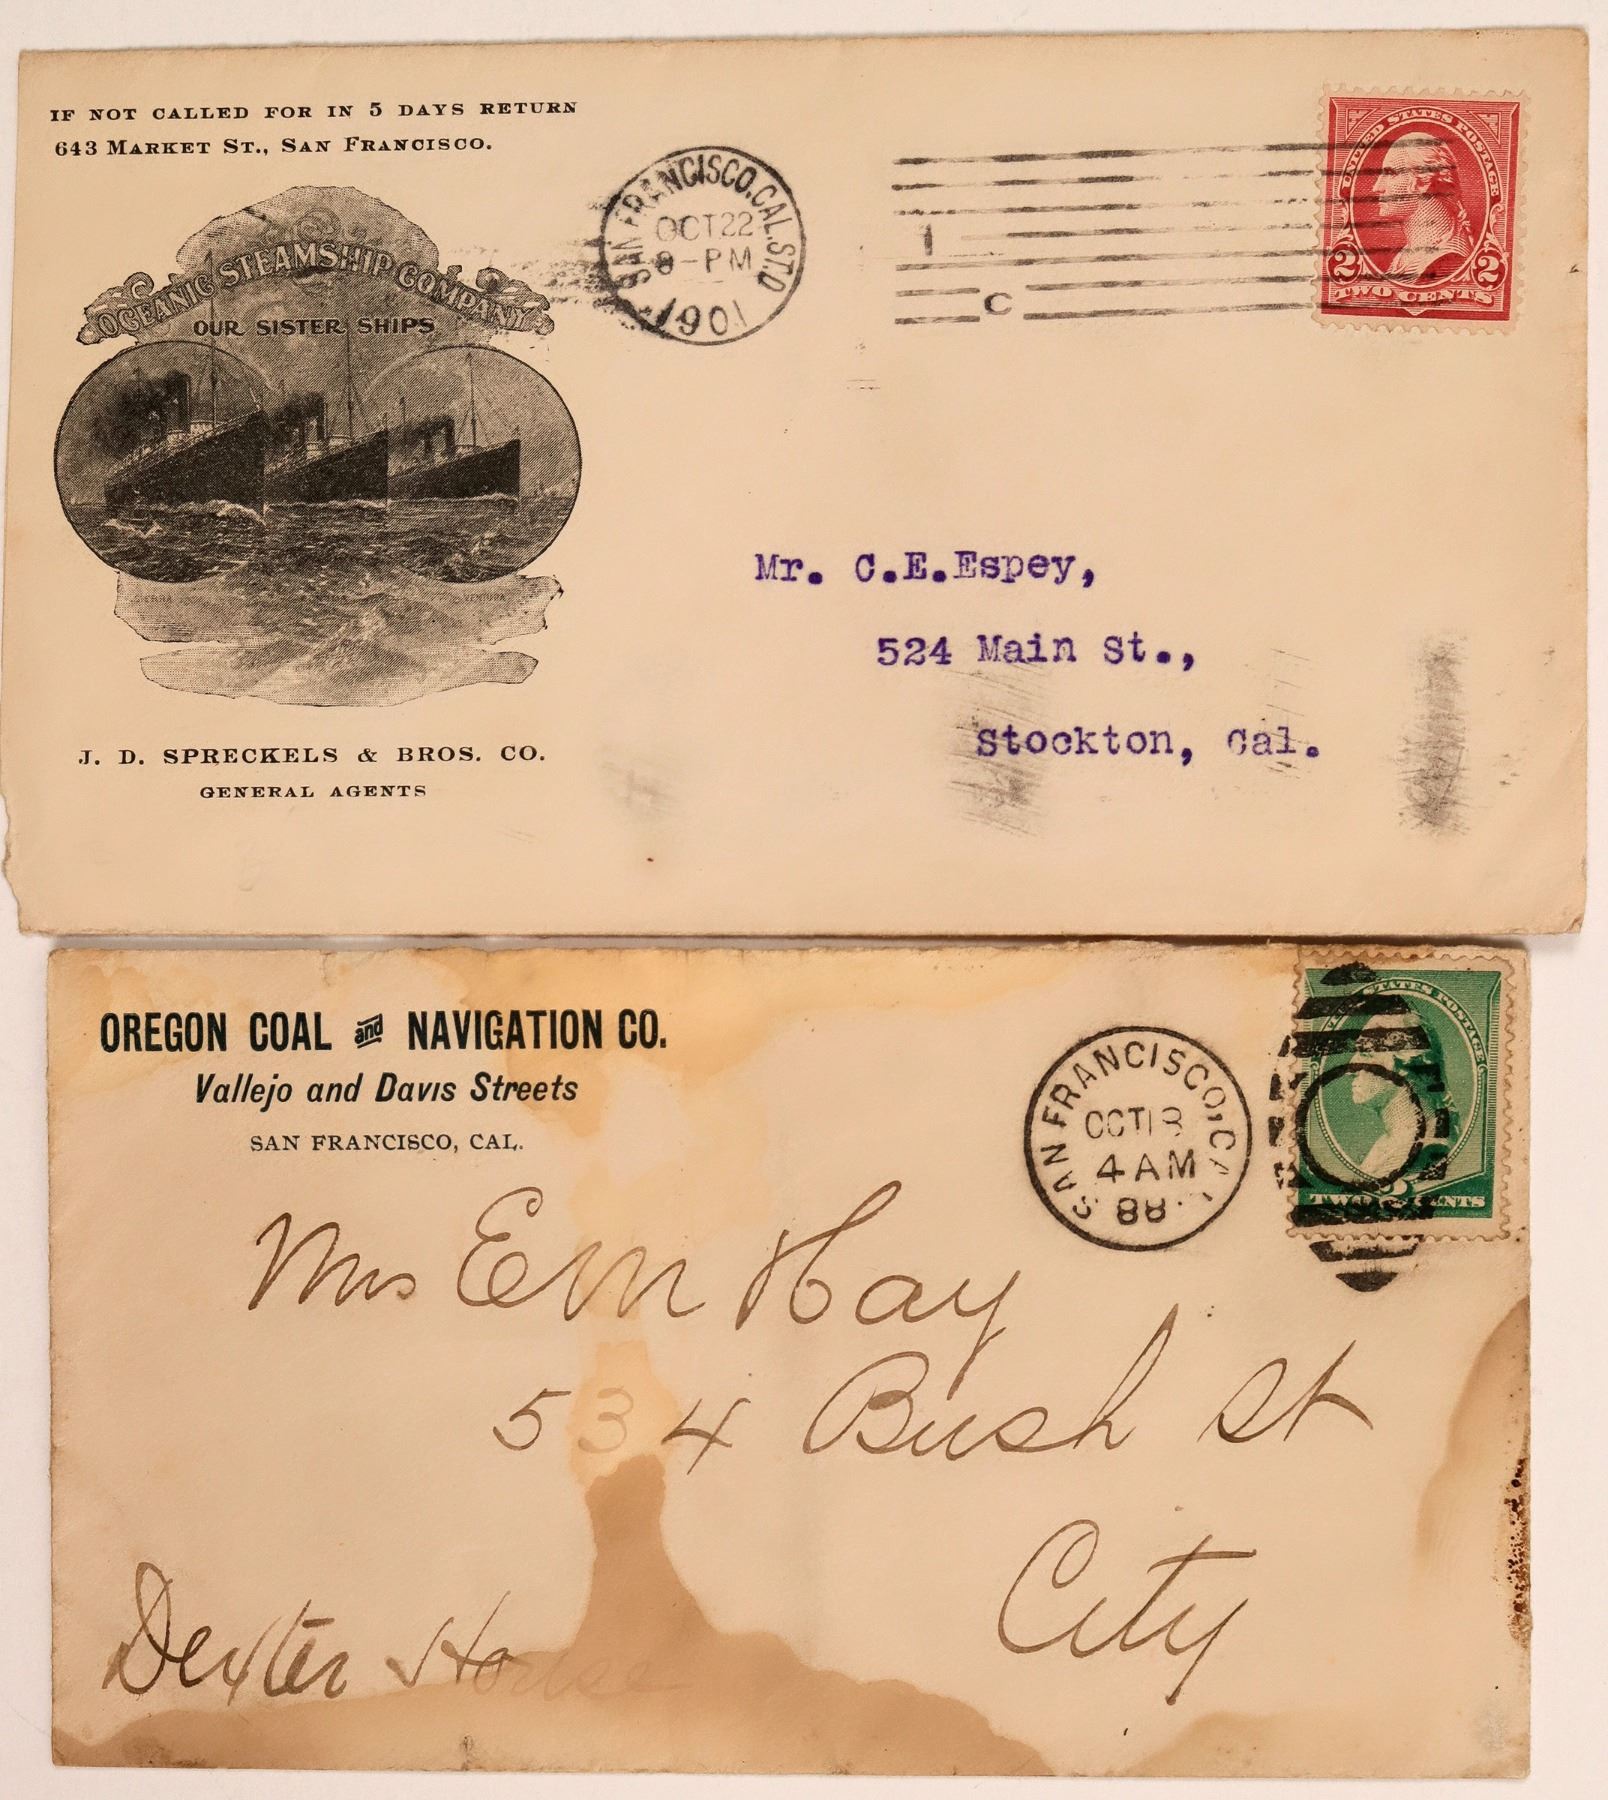 IF NOT CALLED FOR IN 5 DAYS RETURN
643 MARKET ST., SAN FRANCISCO.
OCEANIC STEAMSHIP COMPANY
OUR SISTER SHIPS
SIERRA
VENTURA
J. D. SPRECKELS & BROS. CO.
GENERAL AGENTS
SAN FRANCISCO, CAL. ST'D
OCT 22
8 - PM
1901
1
C
UNITED STATES POSTAGE
2 2
TWO CENTS
Mr. C.E.Espey,
524 Main St.,
Stockton, Cal.
OREGON COAL and NAVIGATION CO.
Vallejo and Davis Streets
SAN FRANCISCO, CAL.
SAN FRANCISCO, CAL.
OCT 18
4 AM
88
STATES POSTAGE
TWO CENTS
Mrs E M Hay
534 Bush St
City
Dexter House